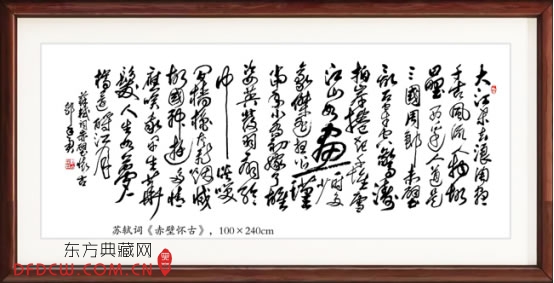 大江东去浪淘尽
千古風流人物故
壘西边人道是
三國周郎赤壁
乱石穿空驚濤
拍岸捲起千堆雪
江山如畫一时多少
豪傑遥想公瑾
当年小乔初嫁了雄
姿英发羽扇纶
巾談笑
间樯橹灰飛烟灭
故國神遊多情
应笑我早生华
髮人生如夢一
樽还酹江月
苏轼词赤壁怀古
苏轼词《赤壁怀古》，100×240cm
东方典藏网
DFDCW.COM.CN